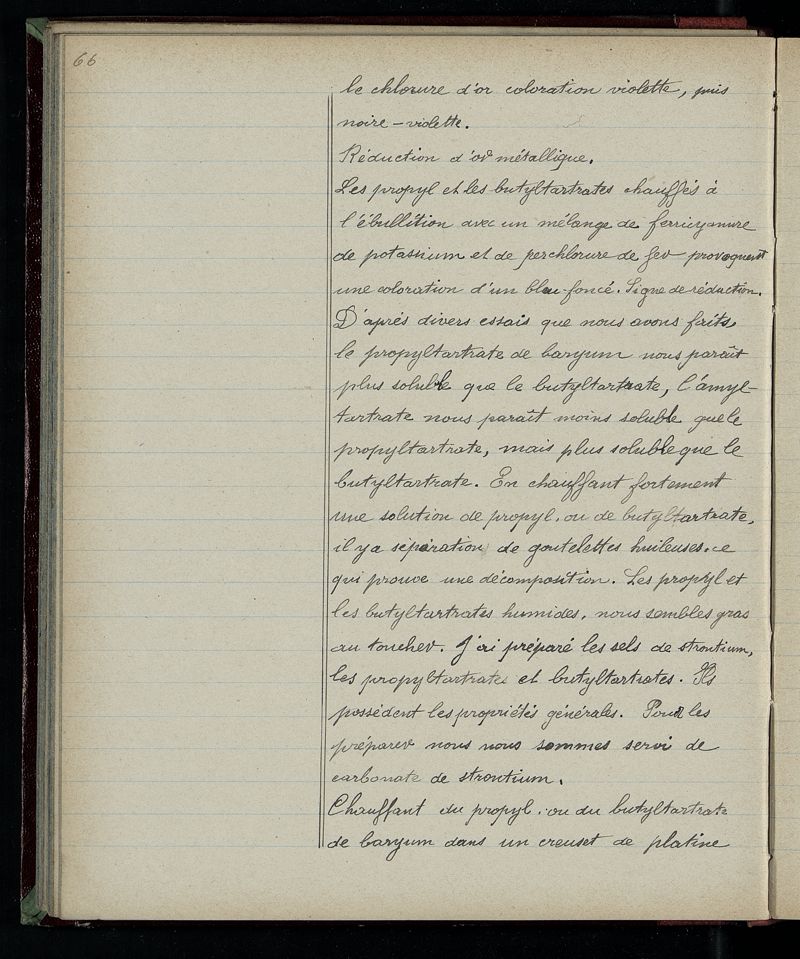 66
le chlorure d'or coloration violette, puis
noire-violette.
Réduction d'or métallique.
Les propyl et les butyltartrates chauffés à
l'ébullition avec un mélange de ferricyanure
de potassium et de perchlorure de fer provoquent
une coloration d'un bleu-foncé. Signe de réduction.
D'après divers essais que nous avons faits,
le propyltartrate de baryum nous paraît
plus soluble que le butyltartrate, l'amyl-
tartrate nous paraît moins soluble que le
propyltartrate, mais plus soluble que le
butyltartrate. En chauffant fortement
une solution de propyl. ou de butyltartrate,
il y a séparation de goutelettes huileuses. ce
qui prouve une décomposition. Les propyl et
les butyltartrates humides, nous sembles gras
au toucher. J'ai préparé les sels de strontium,
les propyltartrates et butyltartrates. Ils
possèdent les propriétés générales. Pour les
préparer nous nous sommes servi de
carbonate de strontium.
Chauffant du propyl. ou du butyltartrate
de baryum dans un creuset de platine